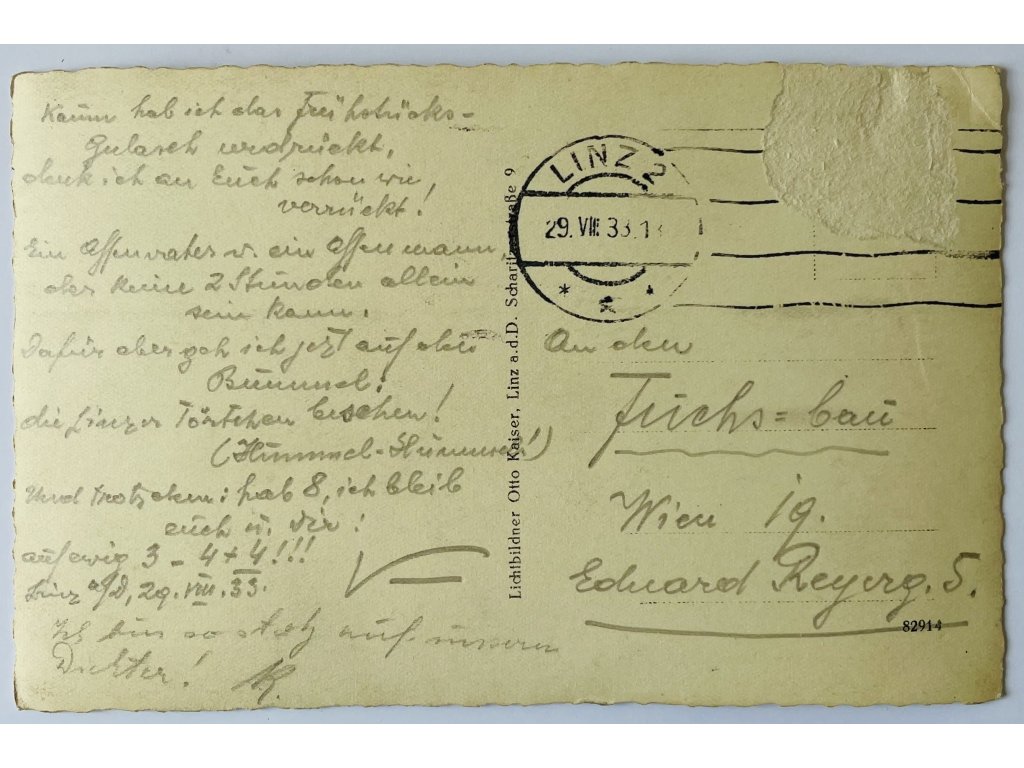 Kaum hab ich das Frühstücks-
Gulasch verdrückt,
denk ich an Euch schon wie
verrückt!
Ein Affenvater u. ein Affenmann,
der keine 2 Stunden allein
sein kann.
Dafür aber geh ich jetzt auf den
Bummel:
die Linzer Törtchen besehen!
(Hummel-Hummel!)
Und trotzdem: hab 8, ich bleib
euch u. Dir:
auf ewig 3 - 4 + 4!!!
Linz a/D, 29. VIII. 33.
Ich bin so stolz auf unseren
Dichter!
LINZ 2
29. VIII. 33. 1
Lichtbildner Otto Kaiser, Linz a.d.D. Scharitzerstraße 9
An den
Fuchs=bau
Wien 19.
Eduard Reyerg. 5.
82914